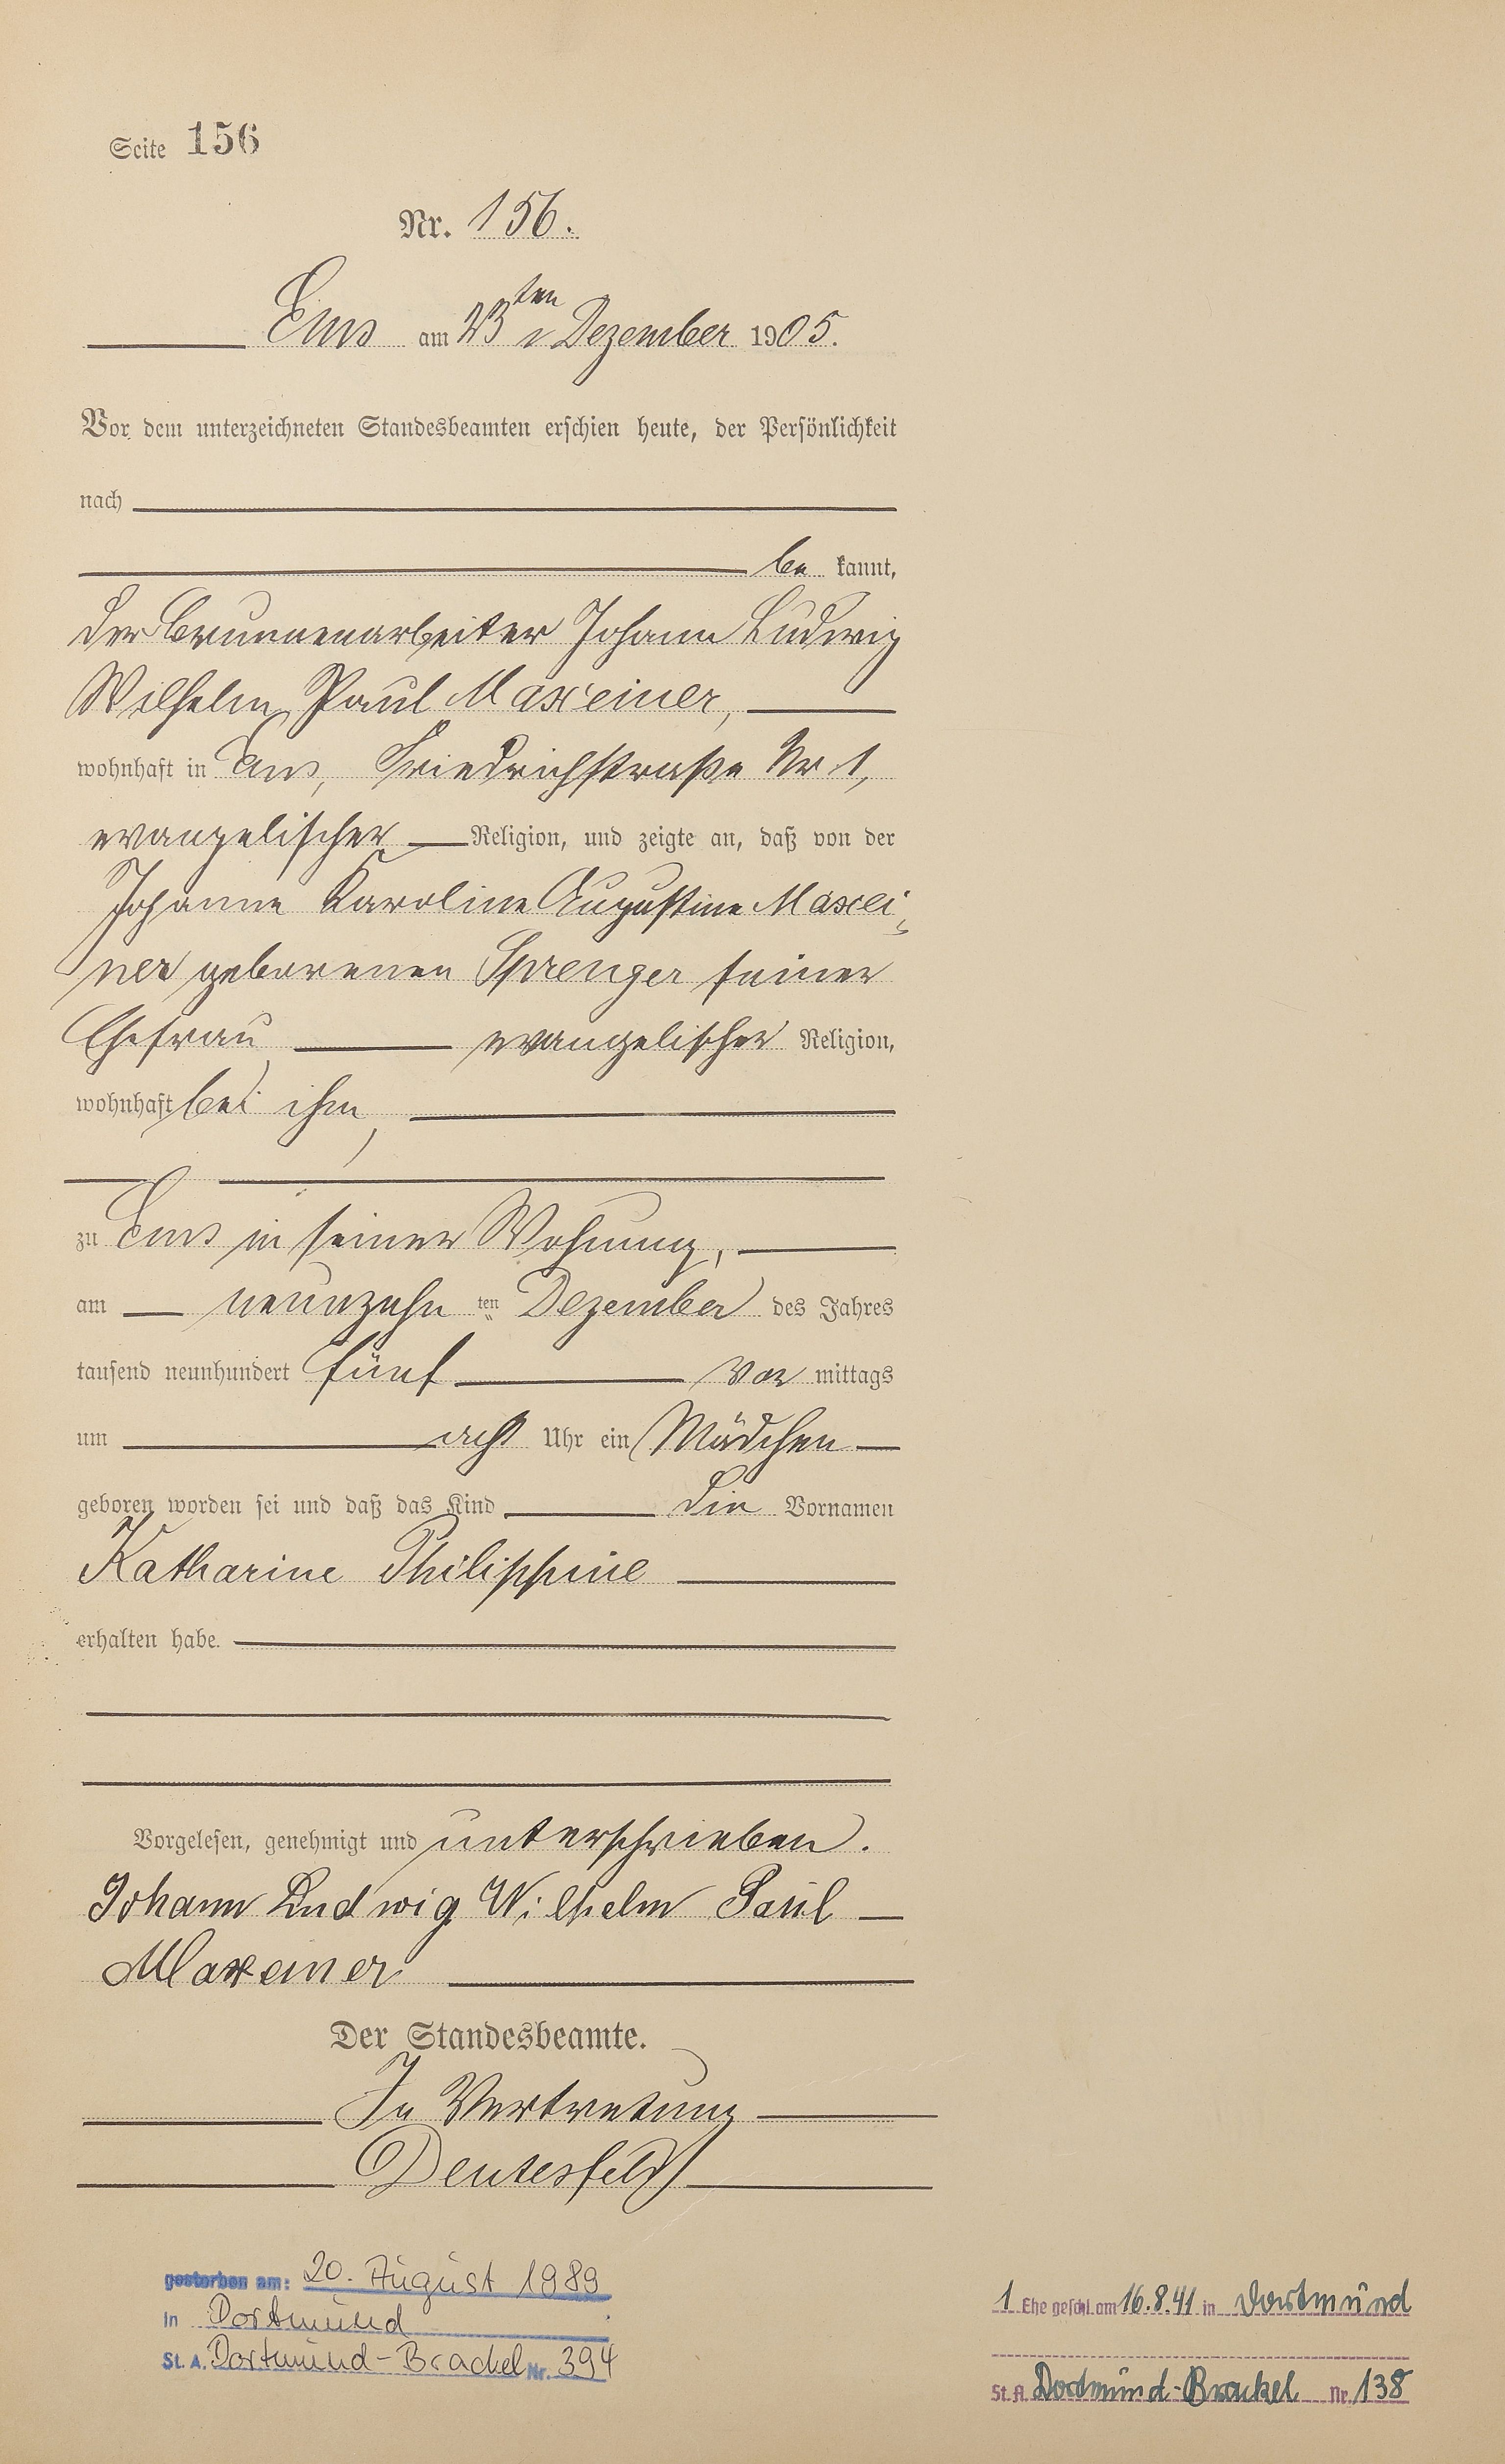 Seite 156
Nr. 156.
Ems am 23ten Dezember 1905.
Vor dem unterzeichneten Standesbeamten erschien heute, der Persönlichkeit
nach
be kannt,
der Brunnenarbeiter Johann Ludwig
Wilhelm Paul Maxeiner,
wohnhaft in Ems, Friedrichstraße Nr 1,
evangelischer Religion, und zeigte an, daß von der
Johanne Karoline Augustine Maxei-
ner geborenen Sprenger seiner
Ehefrau, evangelischer Religion,
wohnhaft bei ihm,
zu Ems in seiner Wohnung,
am neunzehn ten Dezember des Jahres
tausend neunhundert fünf vor mittags
um acht Uhr ein Mädchen
geboren worden sei und daß das Kind die Vornamen
Katharine Philippine
erhalten habe.
Vorgelesen, genehmigt und unterschrieben.
Johann Ludwig Wilhelm Paul
Maxeiner
Der Standesbeamte.
In Vertretung
Deutesfeld
gestorben am: 20. August 1989
in Dortmund
St. A. Dortmund-Brackel Nr. 394
1 Ehe geschl. am 16.8.41 in Dortmund
St. A. Dortmund-Brackel Nr. 138